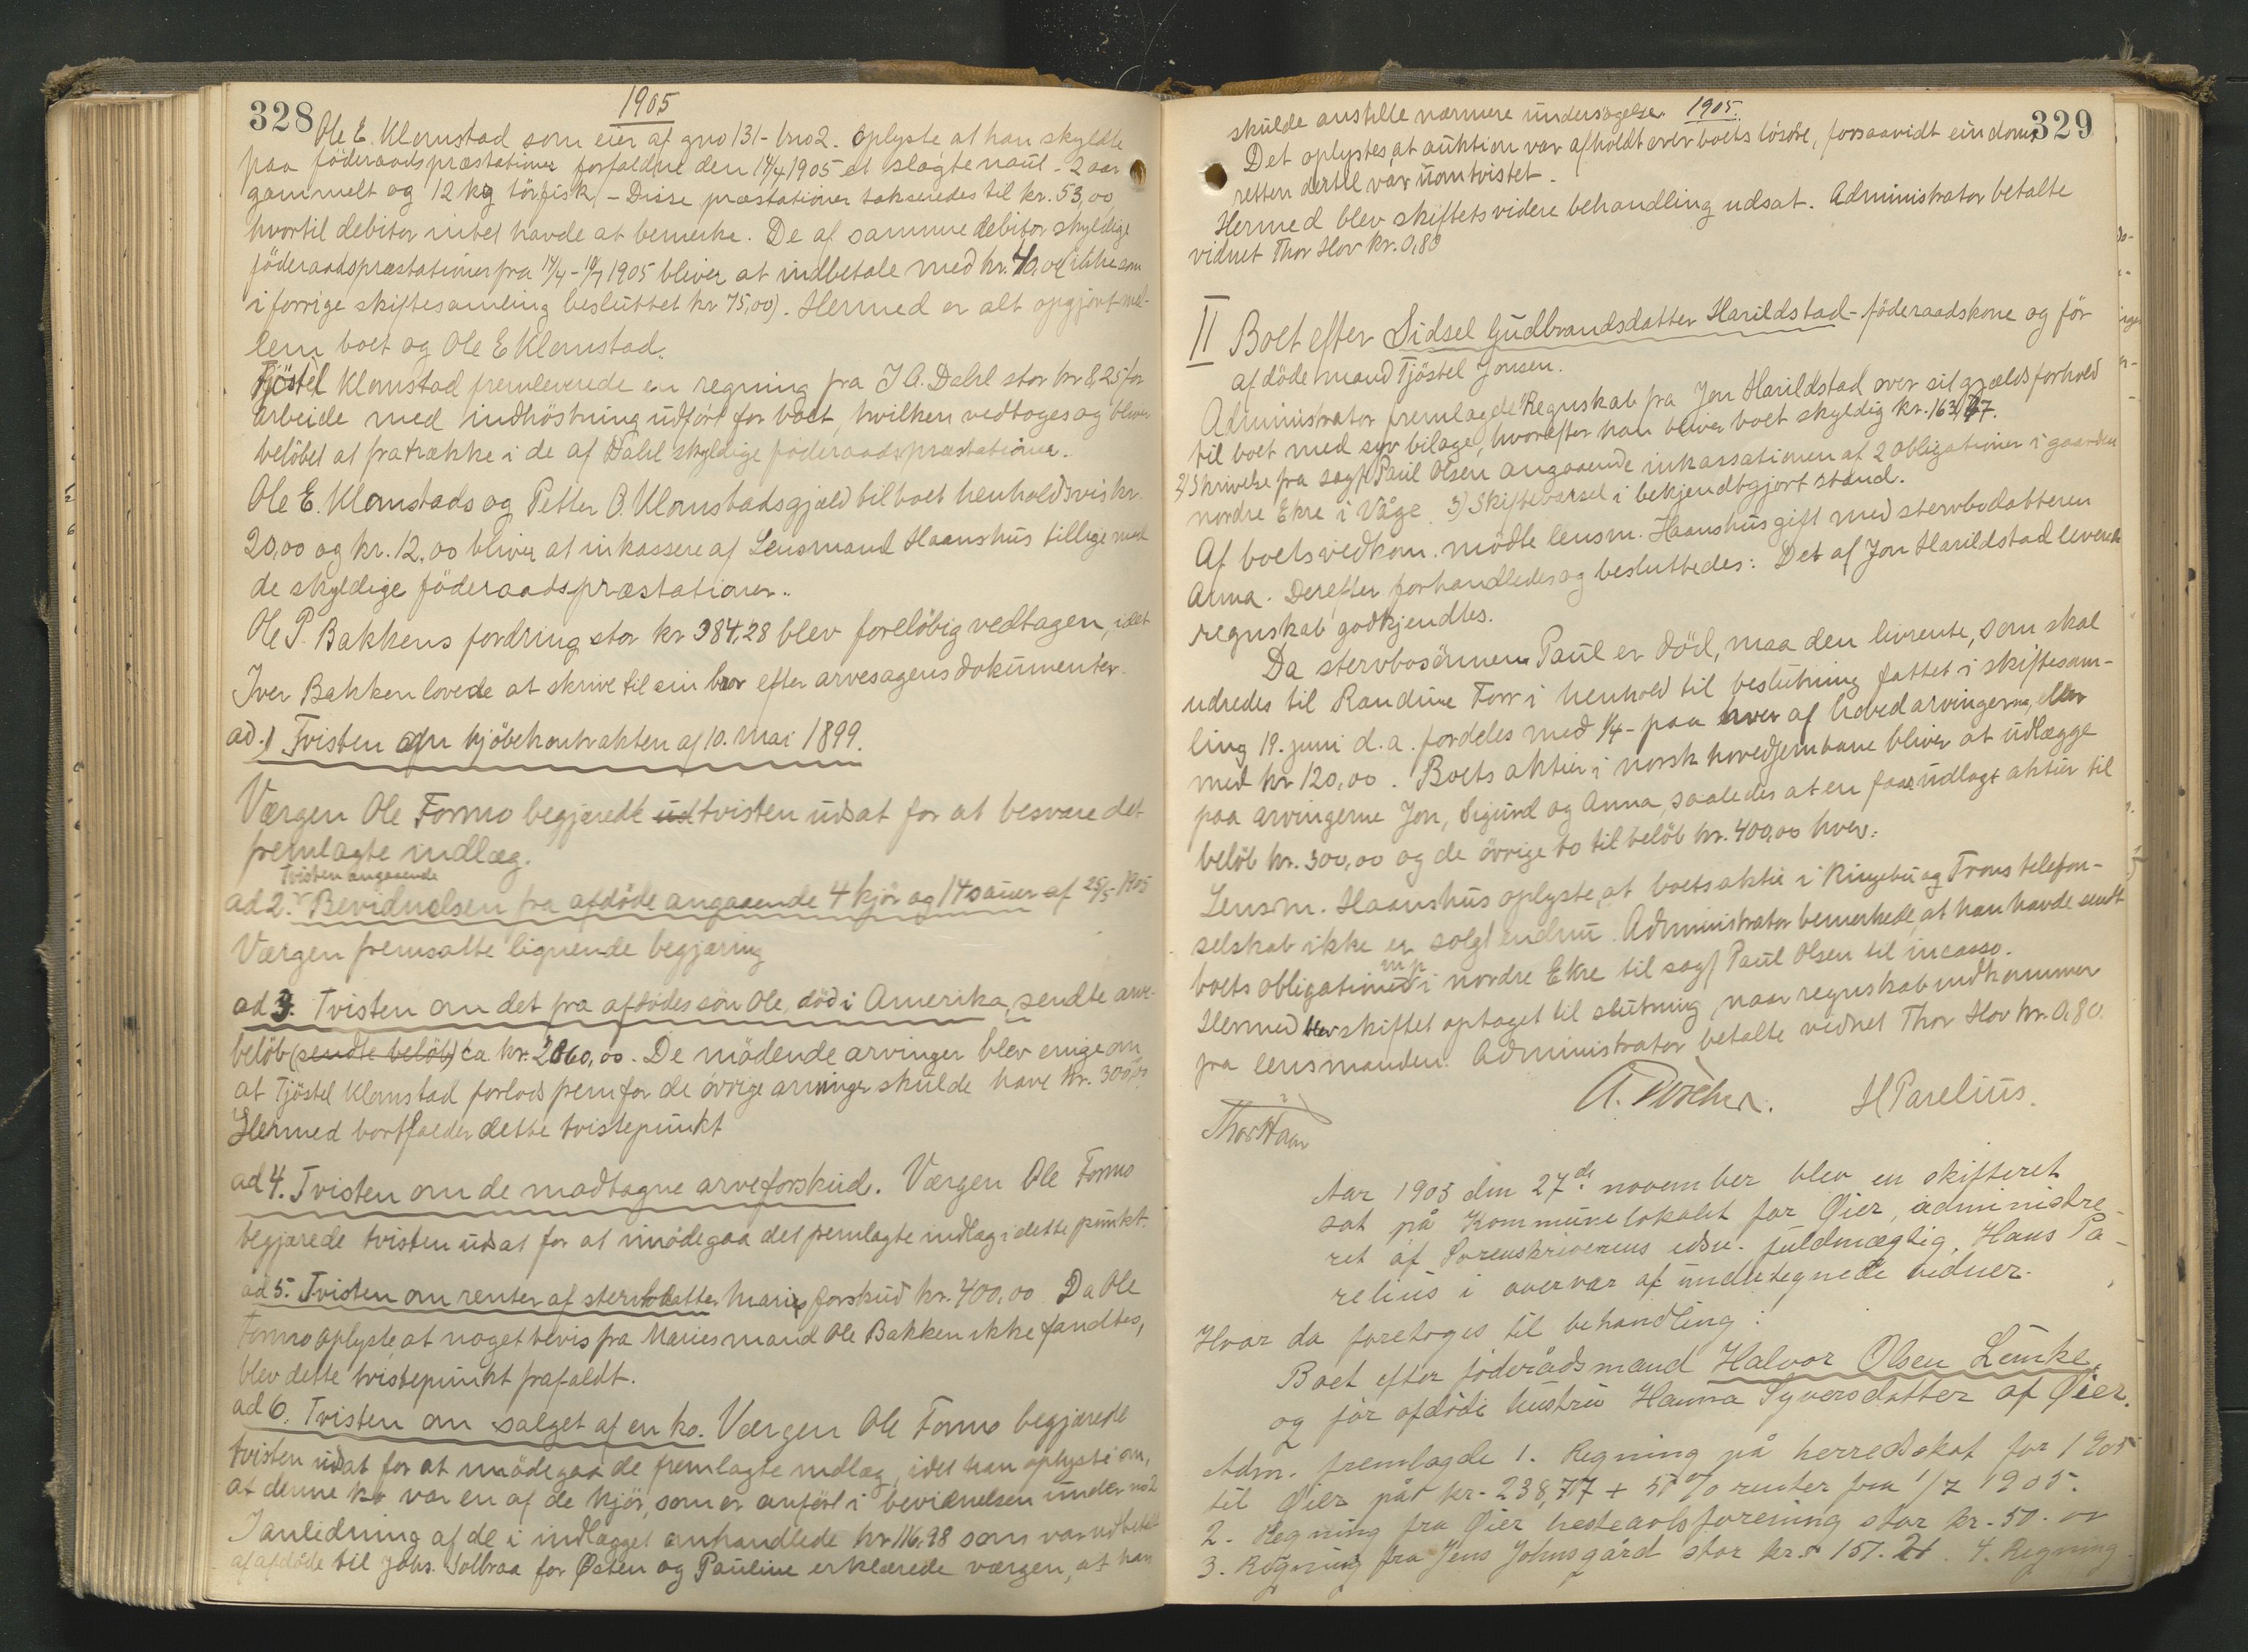 328
1905
Ole E. Klomstad som eier af gno 131 - bno 2. oplyste at han skyldte
paa föderaadspræstationer forfaldne den 14/4 1905 et slagtenaut - 2 aar
gammelt og 12 kg törfisk, - Disse præstationer takseredes til kr. 53,00,
hvortil debitor intet havde at bemerke. De af samme debitor skyldige
föderaadspræstationer fra 14/4 - 1905 bliver at indbetale med kr. 40,00 (ikke som
i forrige skiftesamling besluttet kr 75,00). Hermed er alt opgjort mel-
lem boet og Ole E Klomstad.
Tjöstel Klomstad fremleverede en regning fra J A. Dahl stor kr 8,25 for
arbeide med indhöstning udfört for boet, hvilken vedtoges og bliver
belöbet at fratrække i de af Dahl skyldige föderaadspræstationer.
Ole E. Klomstads og Petter O. Klomstads gjæld til boet henholdsvis kr.
20,00 og kr. 12,00 bliver at inkassere af Lensmand Haanshus tillige med
de skyldige föderaadspræstationer.
Ole P. Bakkens fordring stor kr 384,28 blev foreløbig vedtagen, idet
Iver Bakken lovede at skrive til sin bror efter arvesagens dokumenter.
ad. 1 Tvisten om kjöbekontrakten af 10. mai 1899.
Værgen Ole Formo begjærede ud tvisten udsat for at besvare det
fremlagte indlæg.
Tvisten angaaende
ad 2. Bevidnelsen fra afdöde angaaende 4 kjör og 14 sauer af 25/5 1905
Værgen fremsatte lignende begjæring
ad 3. Tvisten om det fra afdödes sön Ole, död i Amerika, sendte arve-
belöb (sendte belöb) ca kr. 2060,00. De mödende arvinger blev enige om
at Tjöstel Klomstad forlods fremfor de övrige arvinger skulde have kr. 300,00
Hermed bortfalder dette tvistepunkt
ad 4. Tvisten om de modtagne arveforskud. Værgen Ole Formo
begjærede tvisten udsat for at imödegaa det fremlagte indlæg i dette punkt.
ad 5. Tvisten om renter af stervbodatter Maries forskud kr. 400,00 Da Ole
Formo oplyste, at noget bevis fra Maries mand Ole Bakken ikke fandtes,
blev dette tvistepunkt frafaldt.
ad 6. Tvisten om salget af en ko. Værgen Ole Formo begjærede
tvisten udsat for at imödegaa de fremlagte indlæg, idet han oplyste om,
at denne ko var en af de kjör, som er anført i bevidnelsen under no 2
I anledning af de i indlægget omhandlede kr 116,98 som var udbetalt
af afdöde til Johs. Solbraa for Østen og Pauline erklærede værgen, at han
329
1905
skulde anstille nærmere undersögelse.
Det oplystes, at auktion var afholdt over boets lösöre, forsaavidt eindoms
retten dertil var uomtvistet.
Hermed blev skiftets videre behandling udsat. Administrator betalte
vidnet Thor Hov kr. 0,80
II Boet efter Sidsel Gudbrandsdatter Harildstad - föderaadskone og för
afdöde mand Tjöstel Jonsen.
Administrator fremlagde 1) Regnskab fra Jon Harildstad over sit gjældsforhold
til boet med syv bilage, hvorefter han bliver boet skyldig kr.
2) Skrivelse fra sagf. Paul Olsen angaaende inkassationen af 2 obligationer i gaarden
nordre Ekre i Våge. 3) Skiftevarsel i bekjendtgjort stand.
Af boets vedkom. mödte lensm. Haanshus gift med stervbodatteren
Anna. Derefter forhandledes og besluttedes: Det af Jon Harildstad leverede
regnskab godkjendtes.
Da stervbosönnen Paul er död, maa den livrente, som skal
udredes til Randine Forr i henhold til beslutning fattet i skiftesam-
ling 19. juni d. a. fordeles med 1/4 - paa hver af hovedarvingerne, eller
med kr 120,00. Boets aktier i norsk hovedjernbane bliver at udlægge
paa arvingerne Jon, Sigurd og Anna, saaledes at en faar udlagt aktier til
belöb kr. 300,00 og de övrige to til belöb kr. 400,00 hver.
Lensm. Haanshus oplyste, at boets aktie i Ringebu og Frons telefon-
selskab ikke er solgt endnu. Administrator bemerkede, at han havde sendt
boets obligationer m p i nordre Ekre til sagf Paul Olsen til incasso.
Hermed blev skiftet optaget til slutning, naar regnskab indkommer
fra lensmanden. Administrator betalte vidnet Thor Hov kr. 0,80.
H Parelius.
Aar 1905 den 27de november blev en skifteret
sat på Kommunelokalet for Øier, administre-
ret af Sorenskriverens edsv. fuldmægtig, Hans Pa-
relius i overvær af undertegnede vidner.
Hvor da foretoges til behandling:
Boet efter föderådsmand Halvor Olsen Lunke,
og för afdöde hustru Hanna Syversdatter af Øier.
Adm. fremlagde 1. Regning på herredsskat for 1905
til Øier på kr. 238,77 + 5 % renter fra 1/7 1905.
2. Regning fra Øier hesteavlsforening stor kr. 50. oo
3. Regning fra Jens Johnsgård stor kr. 151. 21. 4. Regning